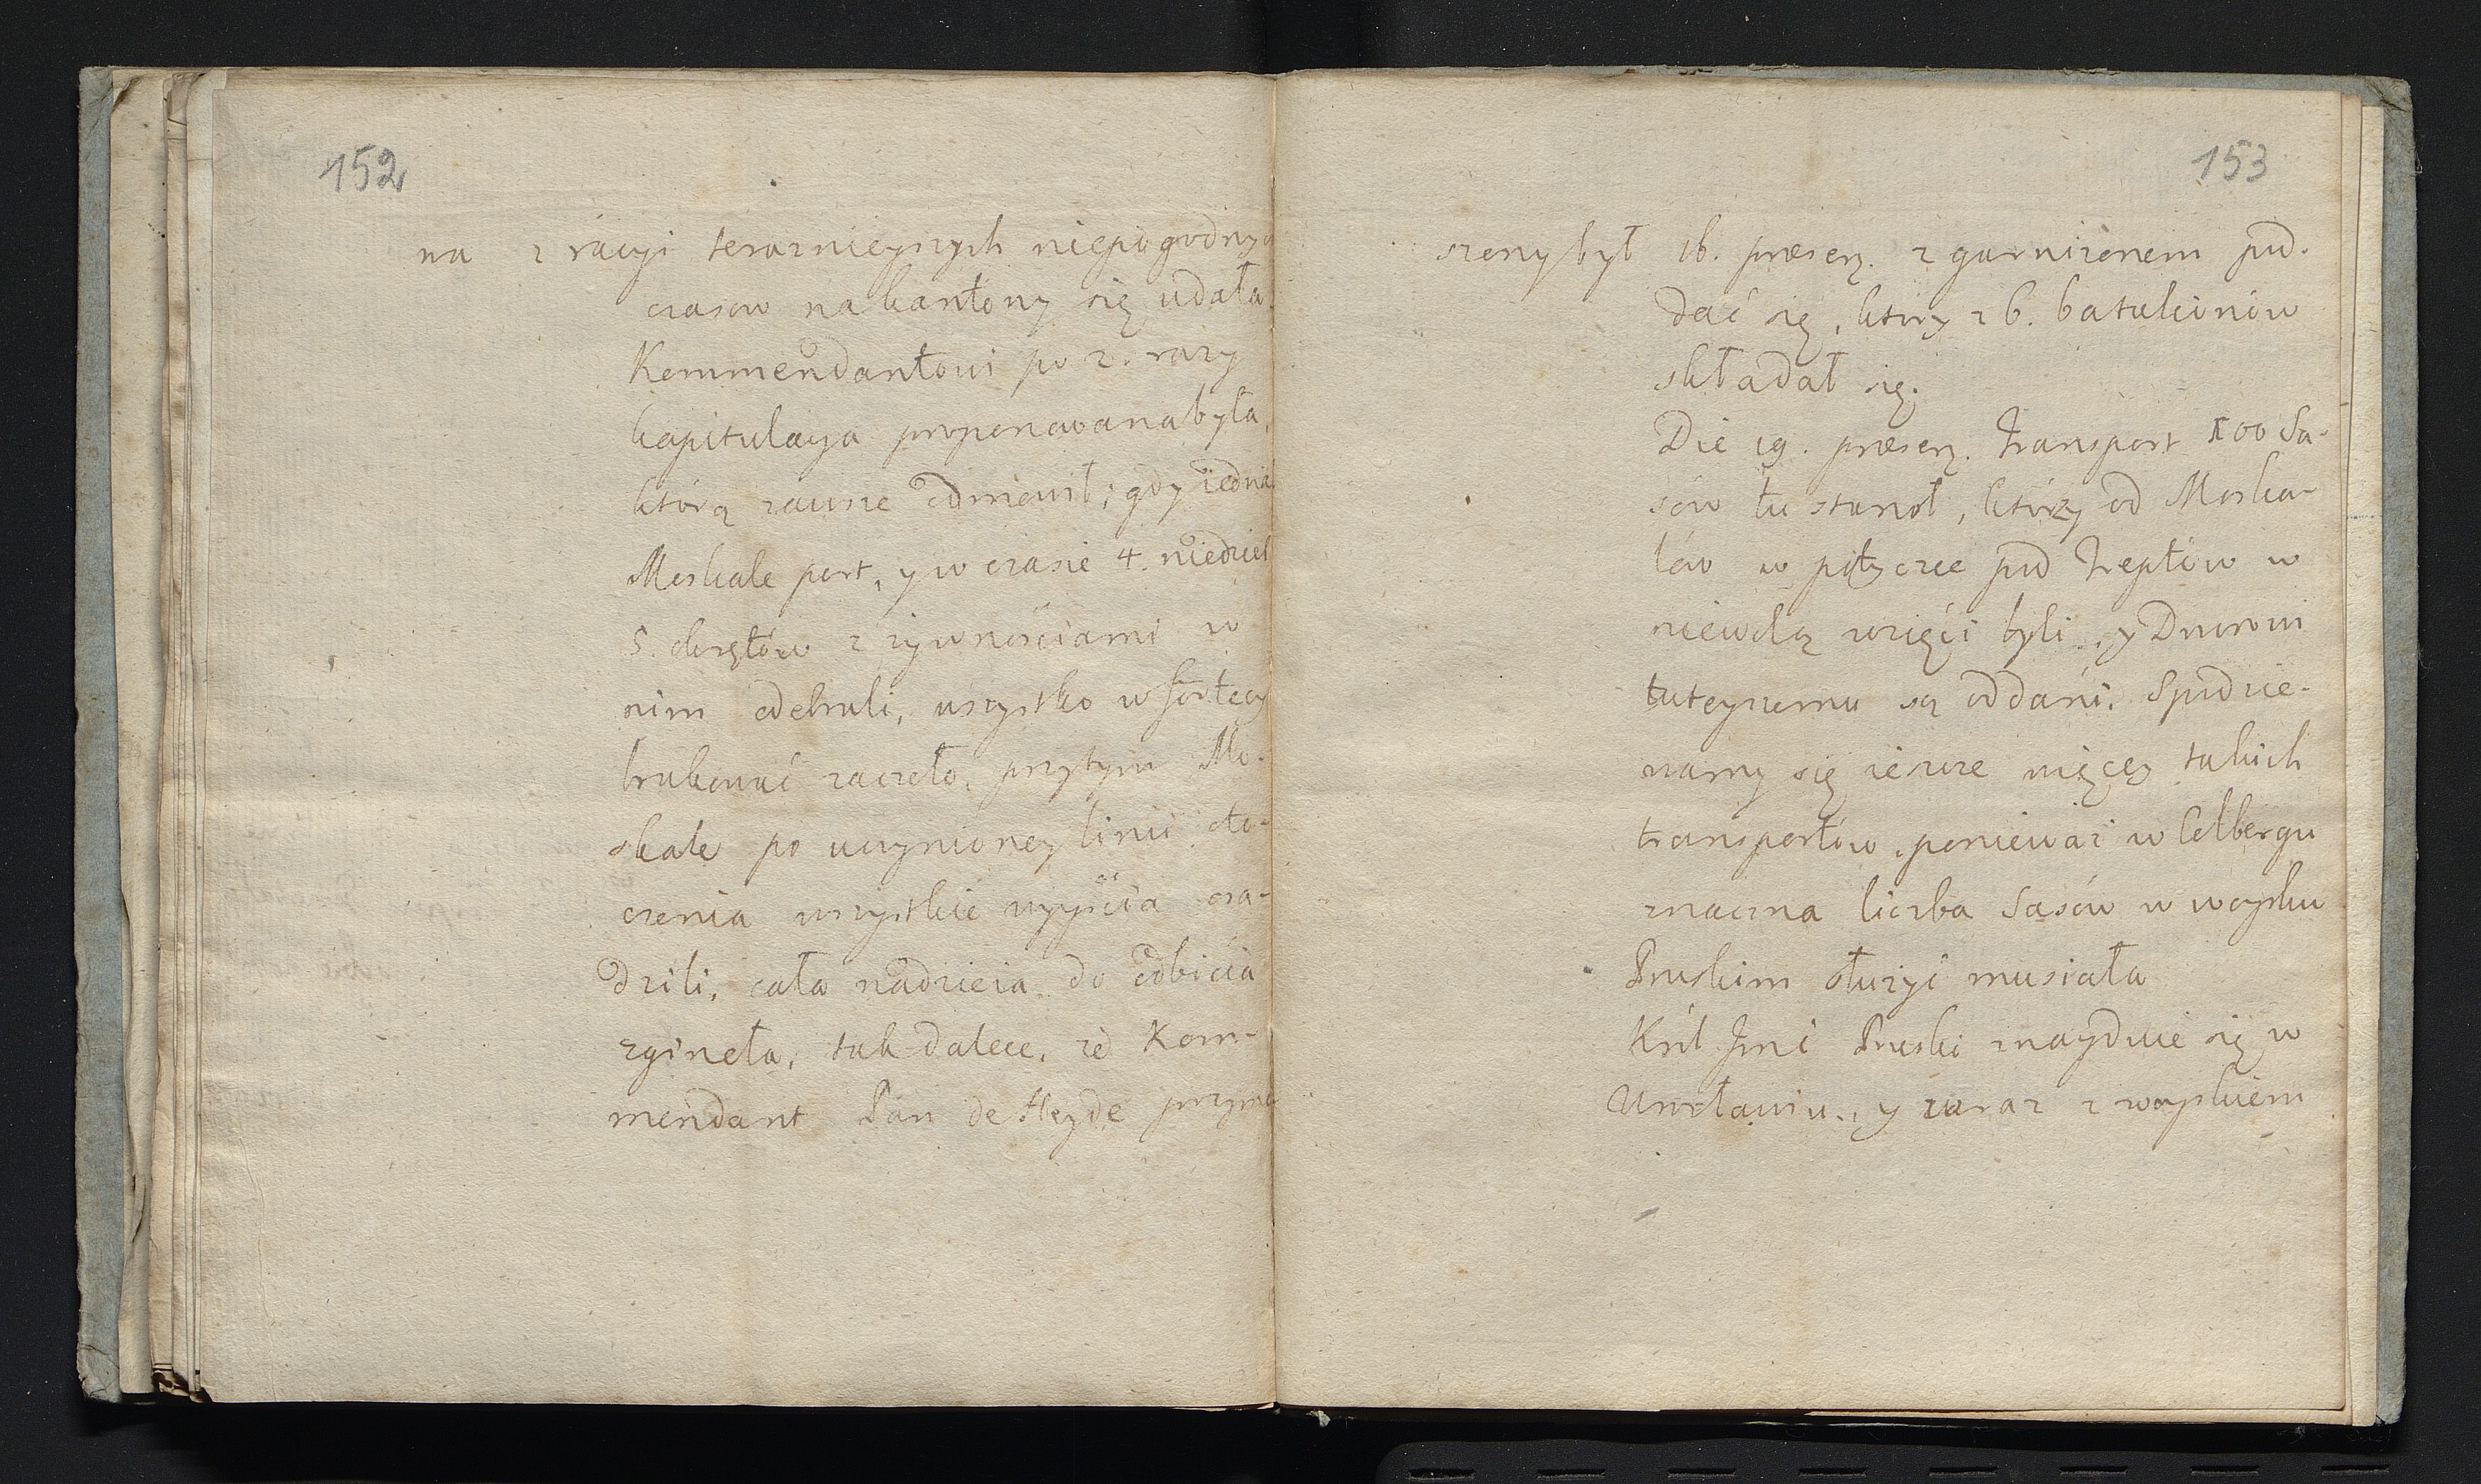 152
na z racyi teraznieyszych niepogodnych
czasow na kantony się udała.
Kommendantowi po 2. razy
kapitulacya proponowana była,
którą zawsze odmówił; gdy iednak
Moskale port, y w czasie 4. niedziel
5. okrętów z zywnościami w
nim odebrali, wszystko w fortecy
brakować zaczeło, przytym Mo-
skale po uczynioney linii oto-
czenia wszystkie wyyścia osa-
dzili, cała nadzieia do odbicia
zgineła, tak dalece, że Kom-
mendant Pan de Heyde przymu
153
szony był 16. præsen. z garnizonem pod.
dać się, który z 6. batalionów
składał się.
Die 19. præsen. Transport 100 Sa-
sów tu stanoł, którzy od Moska-
lów w potyczce pod Treptów w
niewolą wzięci byli, y Dworowi
tuteyszemu są oddani. Spodzie-
wamy się ieszcze więcey takich
transportów, ponieważ w Colbergu
znaczna liczba Sasów w woysku
Pruskim służyć musiała
Król Jmć Pruski znayduie się w
Wrocławiu, y zaraz z woyskiem